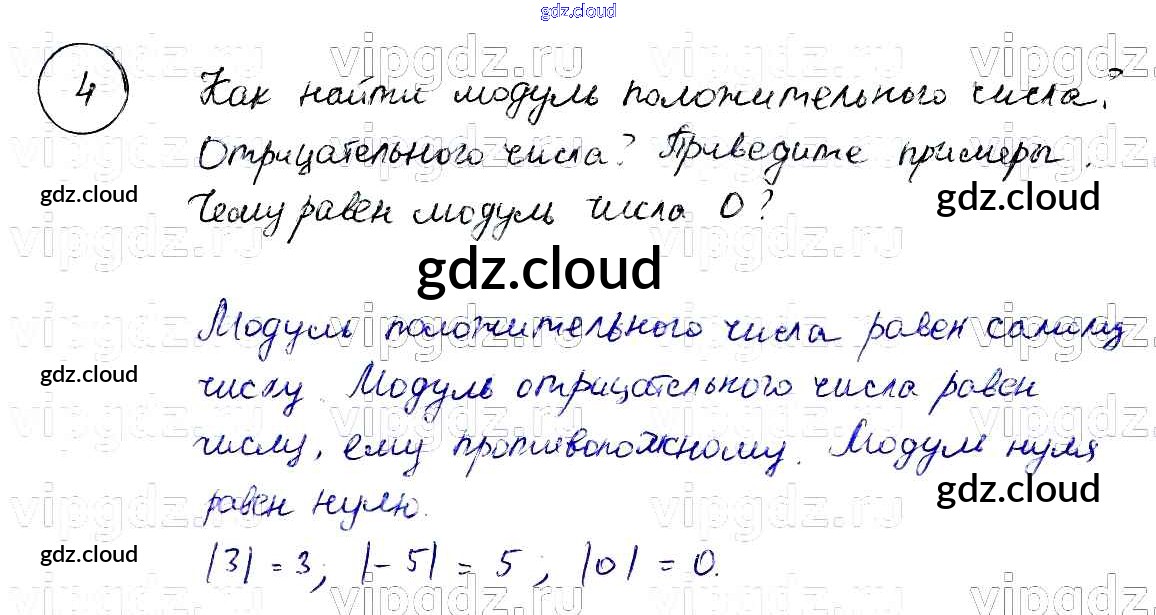 gdz.cloud
4
Как найти модуль положительного числа?
Отрицательного числа? Приведите примеры.
gdz.cloud
gdz.cloud
Чему равен модуль числа 0?
gdz.cloud
Модуль положительного числа равен самому
gdz.cloud
числу. Модуль отрицательного числа равен
числу, ему противоположному. Модуль нуля
gdz.cloud
равен нулю.
gdz.cloud
|3| = 3; |-5| = 5; |0| = 0.